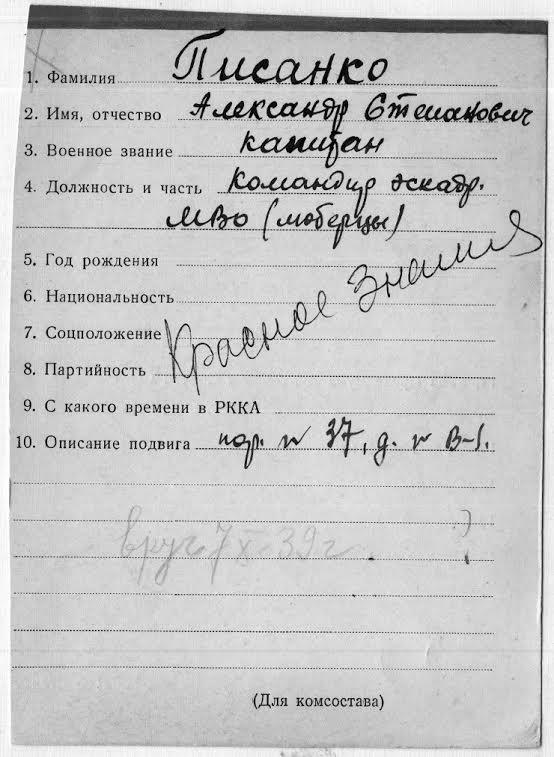 1. Фамилия Писанко
2. Имя, отчество Александр Степанович
3. Военное звание капитан
4. Должность и часть Командир эскадр.
МВО (Люберцы)
5. Год рождения
6. Национальность
7. Соцположение
Красное Знамя
8. Партийность
9. С какого времени в РККА
10. Описание подвига пор. № 37, д. № В-1.
вруч. 7 X-39 г.
(Для комсостава)